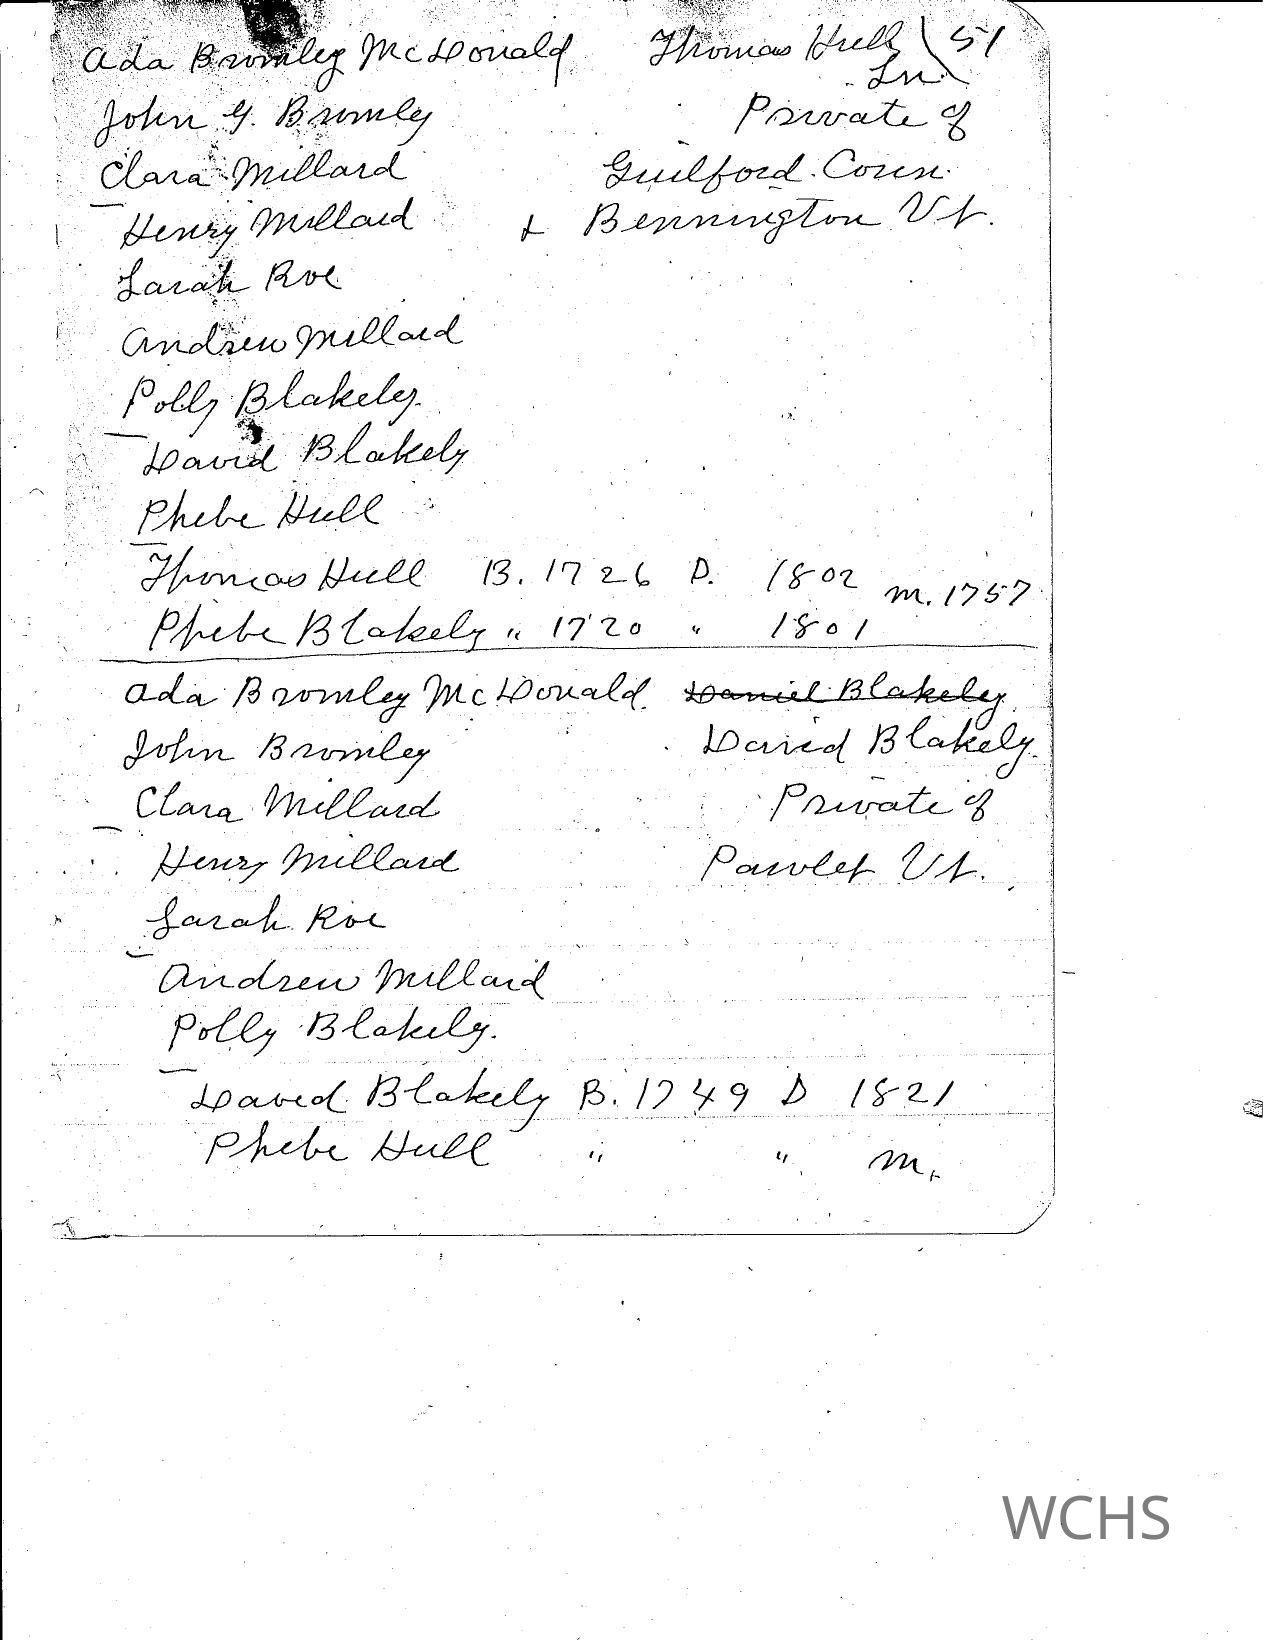 Ada Bromley McDonald Thomas Hull 51
John G. Bromley Private of
Clara Millard Guilford Conn.
Henry Millard & Bennington Vt.
Sarah Roe
Andrew Millard
Polly Blakeley.
David Blakely
Phebe Hull
Thomas Hull B. 1726 D. 1802 m. 1757
Phebe Blakely " 1720 " 1801
Ada Bromley McDonald. Daniel Blakeley
John Bromley David Blakely.
Clara Millard Private of
Henry Millard Pawlet Vt.
Sarah Roe
Andrew Millard
Polly Blakely.
David Blakely B. 1749 D 1821
Phebe Hull " " m.
WCHS